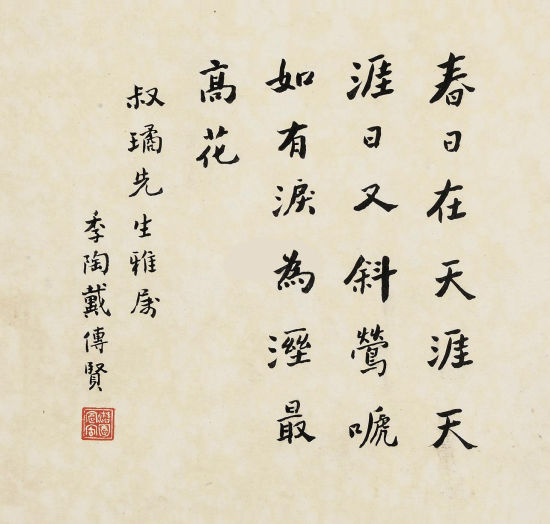 春日在天涯天
涯日又斜鶯嗁
如有淚為溼最
高花
叔璚先生雅属
季陶戴傳賢